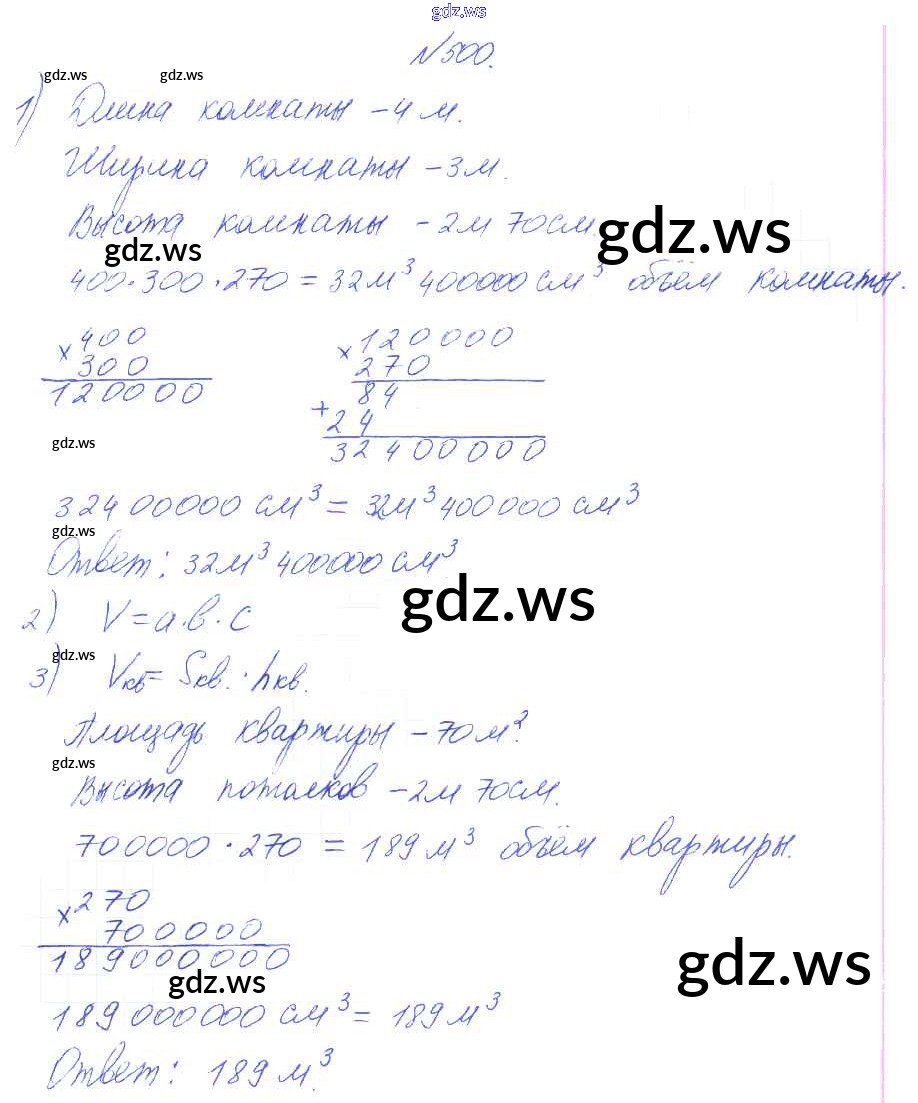 gdz.ws
№500.
gdz.ws gdz.ws
1) Длина комнаты - 4 м.
Ширина комнаты - 3м.
Высота комнаты - 2м 70см.
gdz.ws
gdz.ws
400·300·270 = 32м³ 400000 см³ объём комнаты.
× 400
300
120000
× 120000
270
84
+ 24
32400000
gdz.ws
32400000 см³ = 32м³ 400000 см³
gdz.ws
Ответ: 32м³ 400000 см³
gdz.ws
2) V = a·b·c
gdz.ws
3) Vкв = Sкв. · hкв.
Площадь квартиры - 70 м².
gdz.ws
Высота потолков - 2м 70см.
700000 · 270 = 189 м³ объём квартиры.
× 270
700000
189000000
gdz.ws
gdz.ws
189 000000 см³ = 189 м³
Ответ: 189 м³.